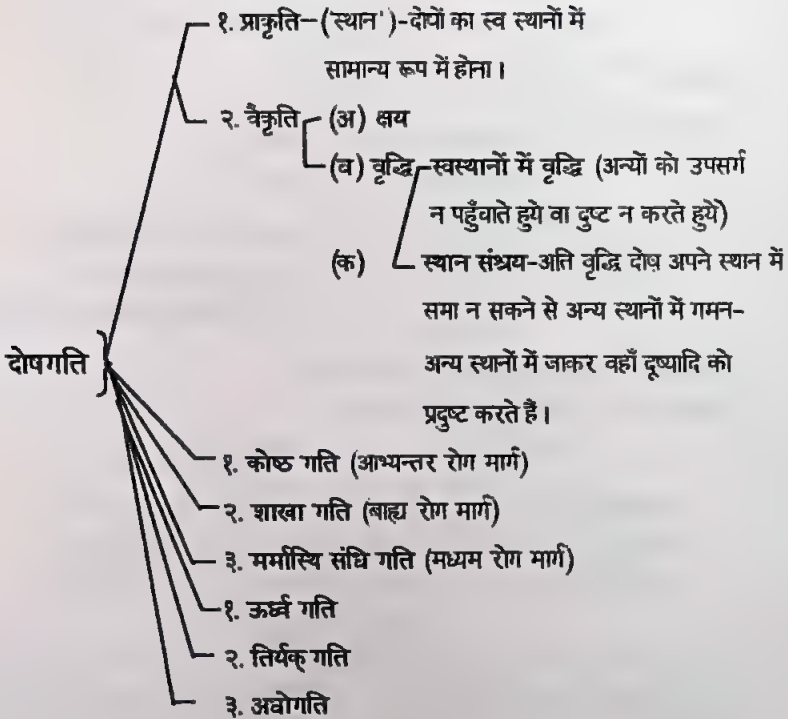 १. प्राकृति–('स्थान')-दोषों का स्व स्थानों में
सामान्य रूप में होना।
२. वैकृति (अ) क्षय
(ब) वृद्धि स्वस्थानों में वृद्धि (अन्यों को उपसर्ग
न पहुँचाते हुये वा दुष्ट न करते हुये)
(क) स्थान संश्रय-अति वृद्धि दोष अपने स्थान में
समा न सकने से अन्य स्थानों में गमन-
अन्य स्थानों में जाकर वहाँ दूष्यादि को
प्रदुष्ट करते हैं।
दोषगति
१. कोष्ठ गति (आभ्यन्तर रोग मार्ग)
२. शाखा गति (बाह्य रोग मार्ग)
३. मर्मास्थि संधि गति (मध्यम रोग मार्ग)
१. ऊर्ध्व गति
२. तिर्यक् गति
३. अधोगति